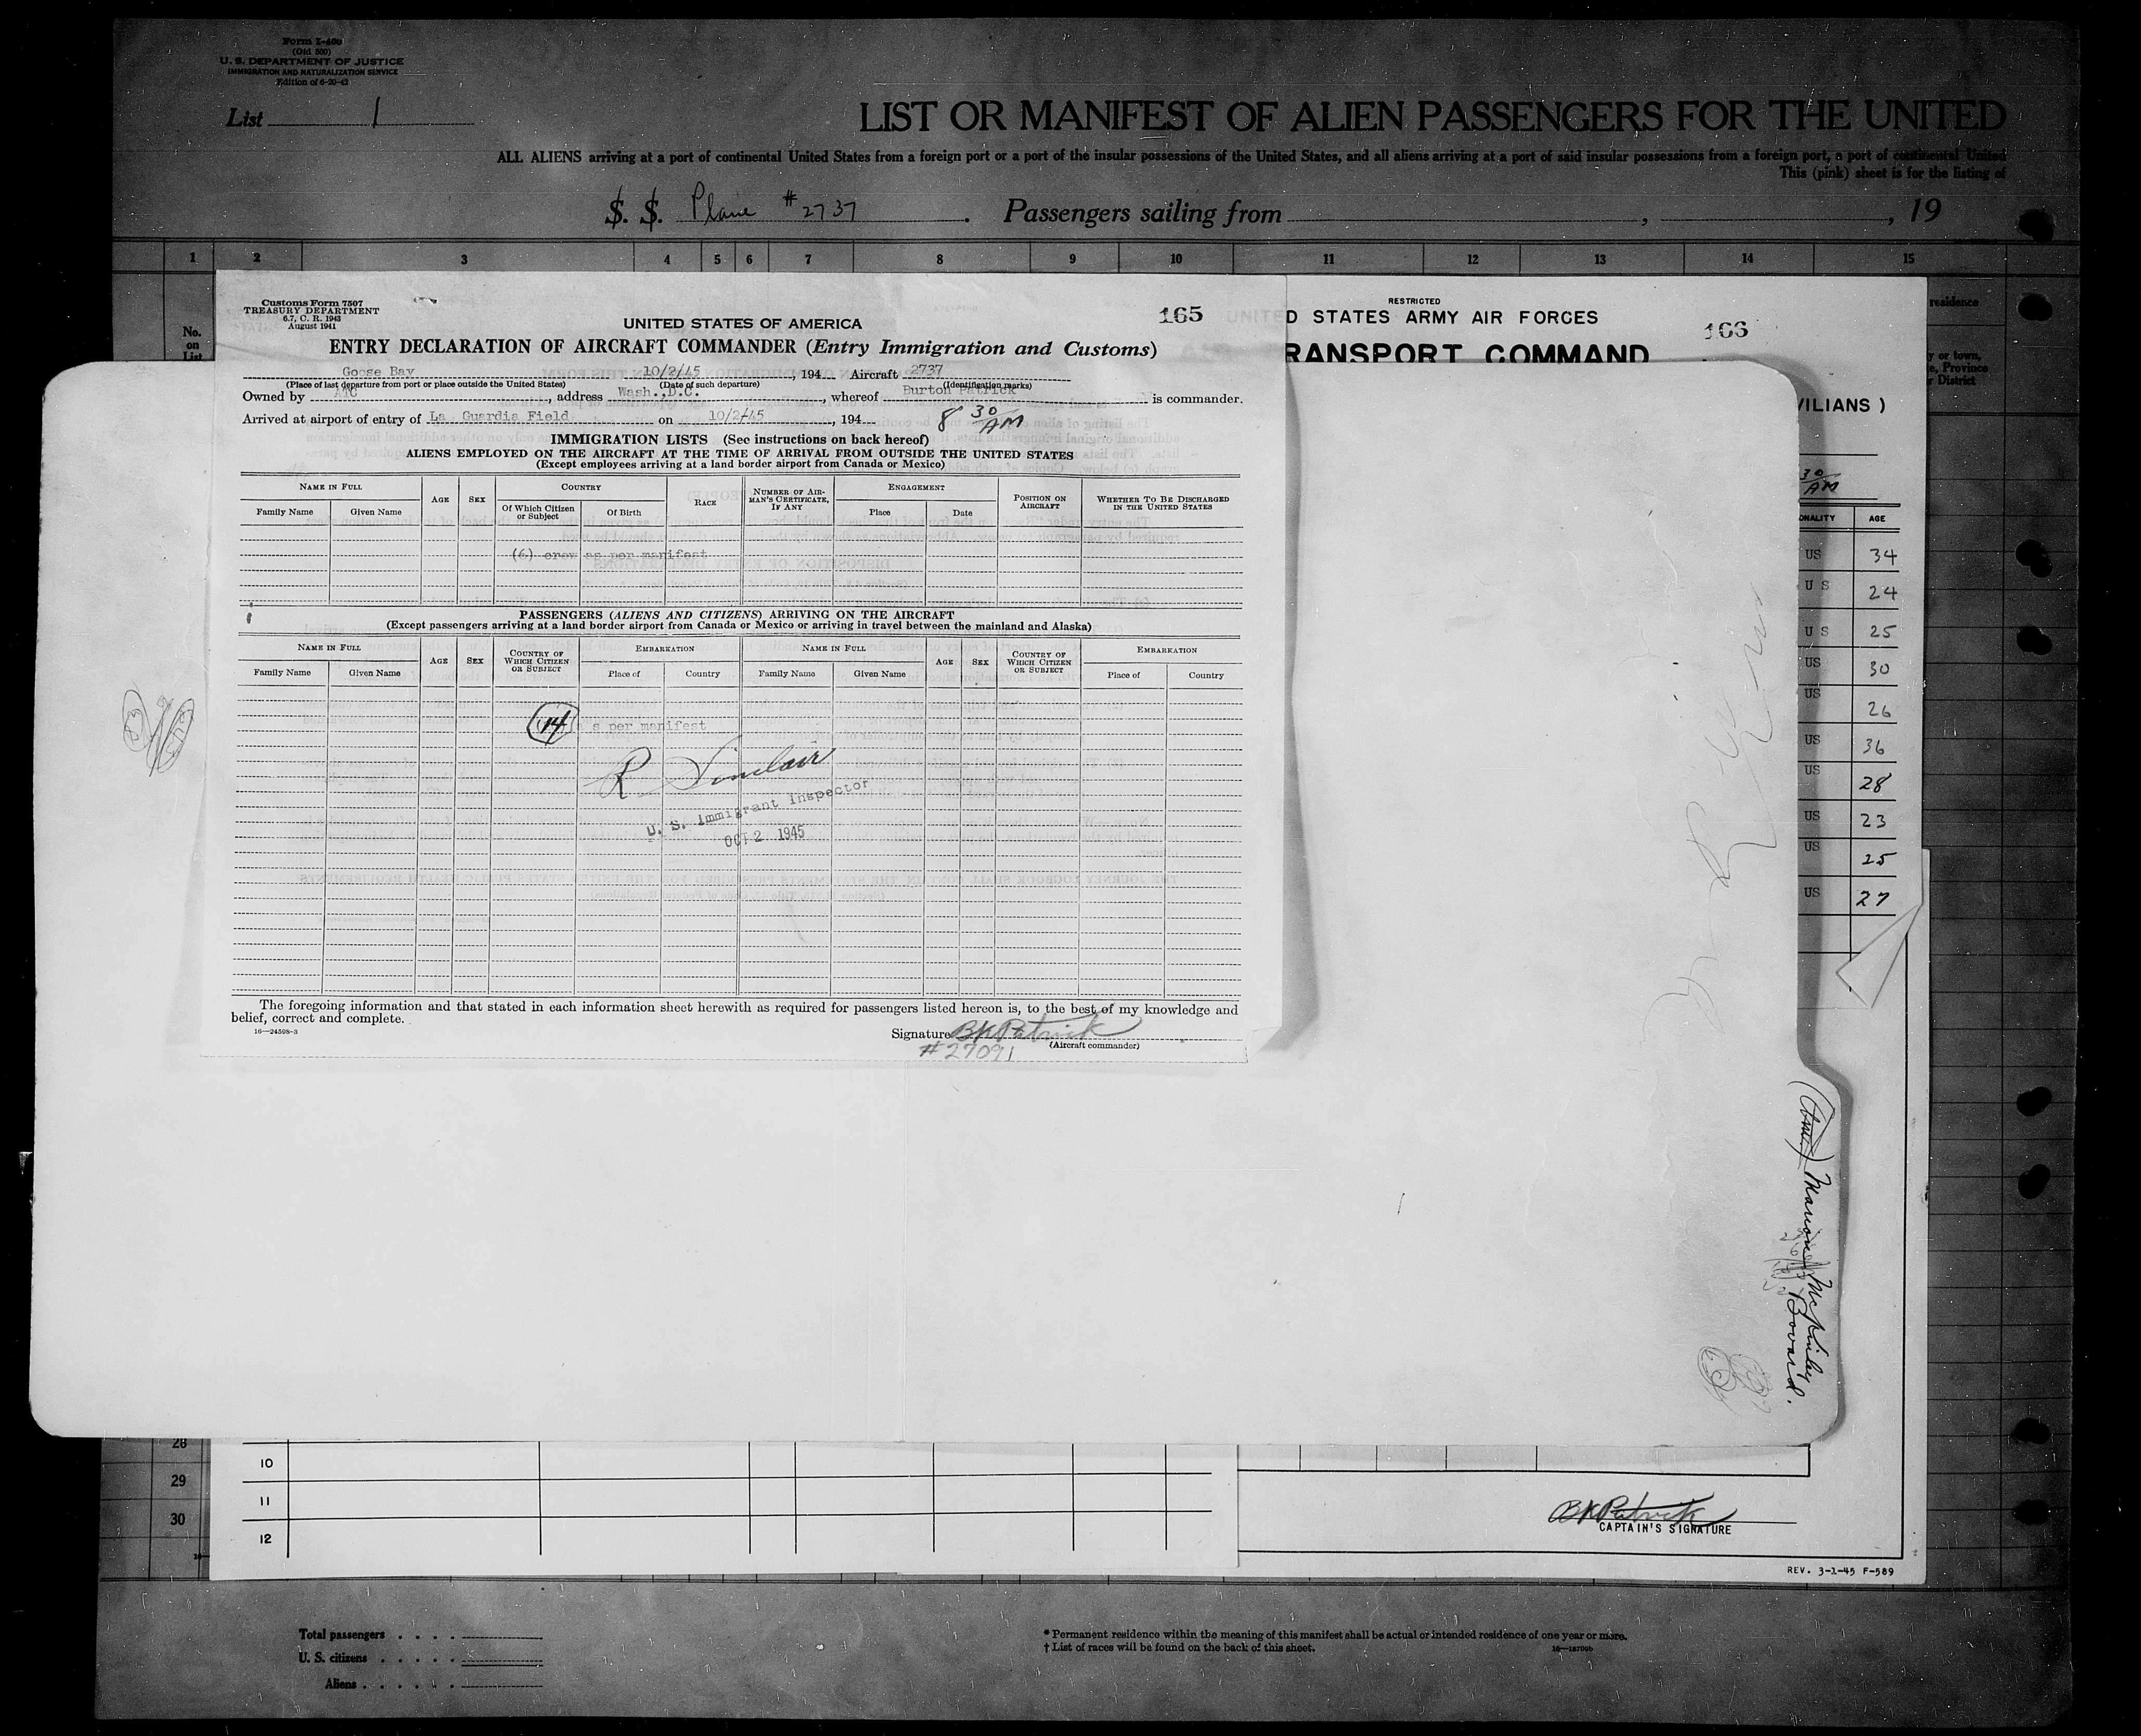 Form I-400
(Old 500)
U. S. DEPARTMENT OF JUSTICE
IMMIGRATION AND NATURALIZATION SERVICE
Edition of 6-20-42
List 1
LIST OR MANIFEST OF ALIEN PASSENGERS FOR THE UNITED
ALL ALIENS arriving at a port of continental United States from a foreign port or a port of the insular possessions of the United States, and all aliens arriving at a port of said insular possessions from a foreign port, a port of continental United
This (pink) sheet is for the listing of
S. S. Plane #2737 . Passengers sailing from , , 19
1 2 3 4 5 6 7 8 9 10 11 12 13 14 15
No.
on
List
residence
y or town,
e, Province
r District
Customs Form 7507
TREASURY DEPARTMENT
6.7, C. R. 1943
August 1941
165
UNITED STATES OF AMERICA
ENTRY DECLARATION OF AIRCRAFT COMMANDER (Entry Immigration and Customs)
Goose Bay 10/2/45, 194 Aircraft 2737
(Place of last departure from port or place outside the United States) (Date of such departure) (Identification marks)
Owned by ATC, address Wash.,D.C., whereof Burton Patrick is commander.
Arrived at airport of entry of La Guardia Field on 10/2/45, 194 8 30 AM
IMMIGRATION LISTS (See instructions on back hereof)
ALIENS EMPLOYED ON THE AIRCRAFT AT THE TIME OF ARRIVAL FROM OUTSIDE THE UNITED STATES
(Except employees arriving at a land border airport from Canada or Mexico)
NAME IN FULL AGE SEX COUNTRY RACE NUMBER OF AIRMAN'S CERTIFICATE, IF ANY ENGAGEMENT POSITION ON AIRCRAFT WHETHER TO BE DISCHARGED IN THE UNITED STATES
Family Name Given Name Of Which Citizen or Subject Of Birth Place Date
(6) crew as per manifest
PASSENGERS (ALIENS AND CITIZENS) ARRIVING ON THE AIRCRAFT
(Except passengers arriving at a land border airport from Canada or Mexico or arriving in travel between the mainland and Alaska)
NAME IN FULL AGE SEX COUNTRY OF WHICH CITIZEN OR SUBJECT EMBARKATION NAME IN FULL AGE SEX COUNTRY OF WHICH CITIZEN OR SUBJECT EMBARKATION
Family Name Given Name Place of Country Family Name Given Name Place of Country
14 s per manifest
R Sinclair
U. S. Immigrant Inspector
OCT 2 1945
The foregoing information and that stated in each information sheet herewith as required for passengers listed hereon is, to the best of my knowledge and
belief, correct and complete.
16—24598-3
Signature BKPatrick
(Aircraft commander)
#27091
RESTRICTED
D STATES ARMY AIR FORCES
166
RANSPORT COMMAND
VILIANS )
30 AM
ONALITY AGE
US 34
U S 24
U S 25
US 30
US 26
US 36
US 28
US 23
US 25
US 27
Marion McKinley
Bovard.
28
29
30
10
11
12
BKPatrick
CAPTAIN'S SIGNATURE
REV. 3-1-45 F-589
Total passengers . . . .
U. S. citizens . . . . .
Aliens . . . . . .
* Permanent residence within the meaning of this manifest shall be actual or intended residence of one year or more.
† List of races will be found on the back of this sheet.